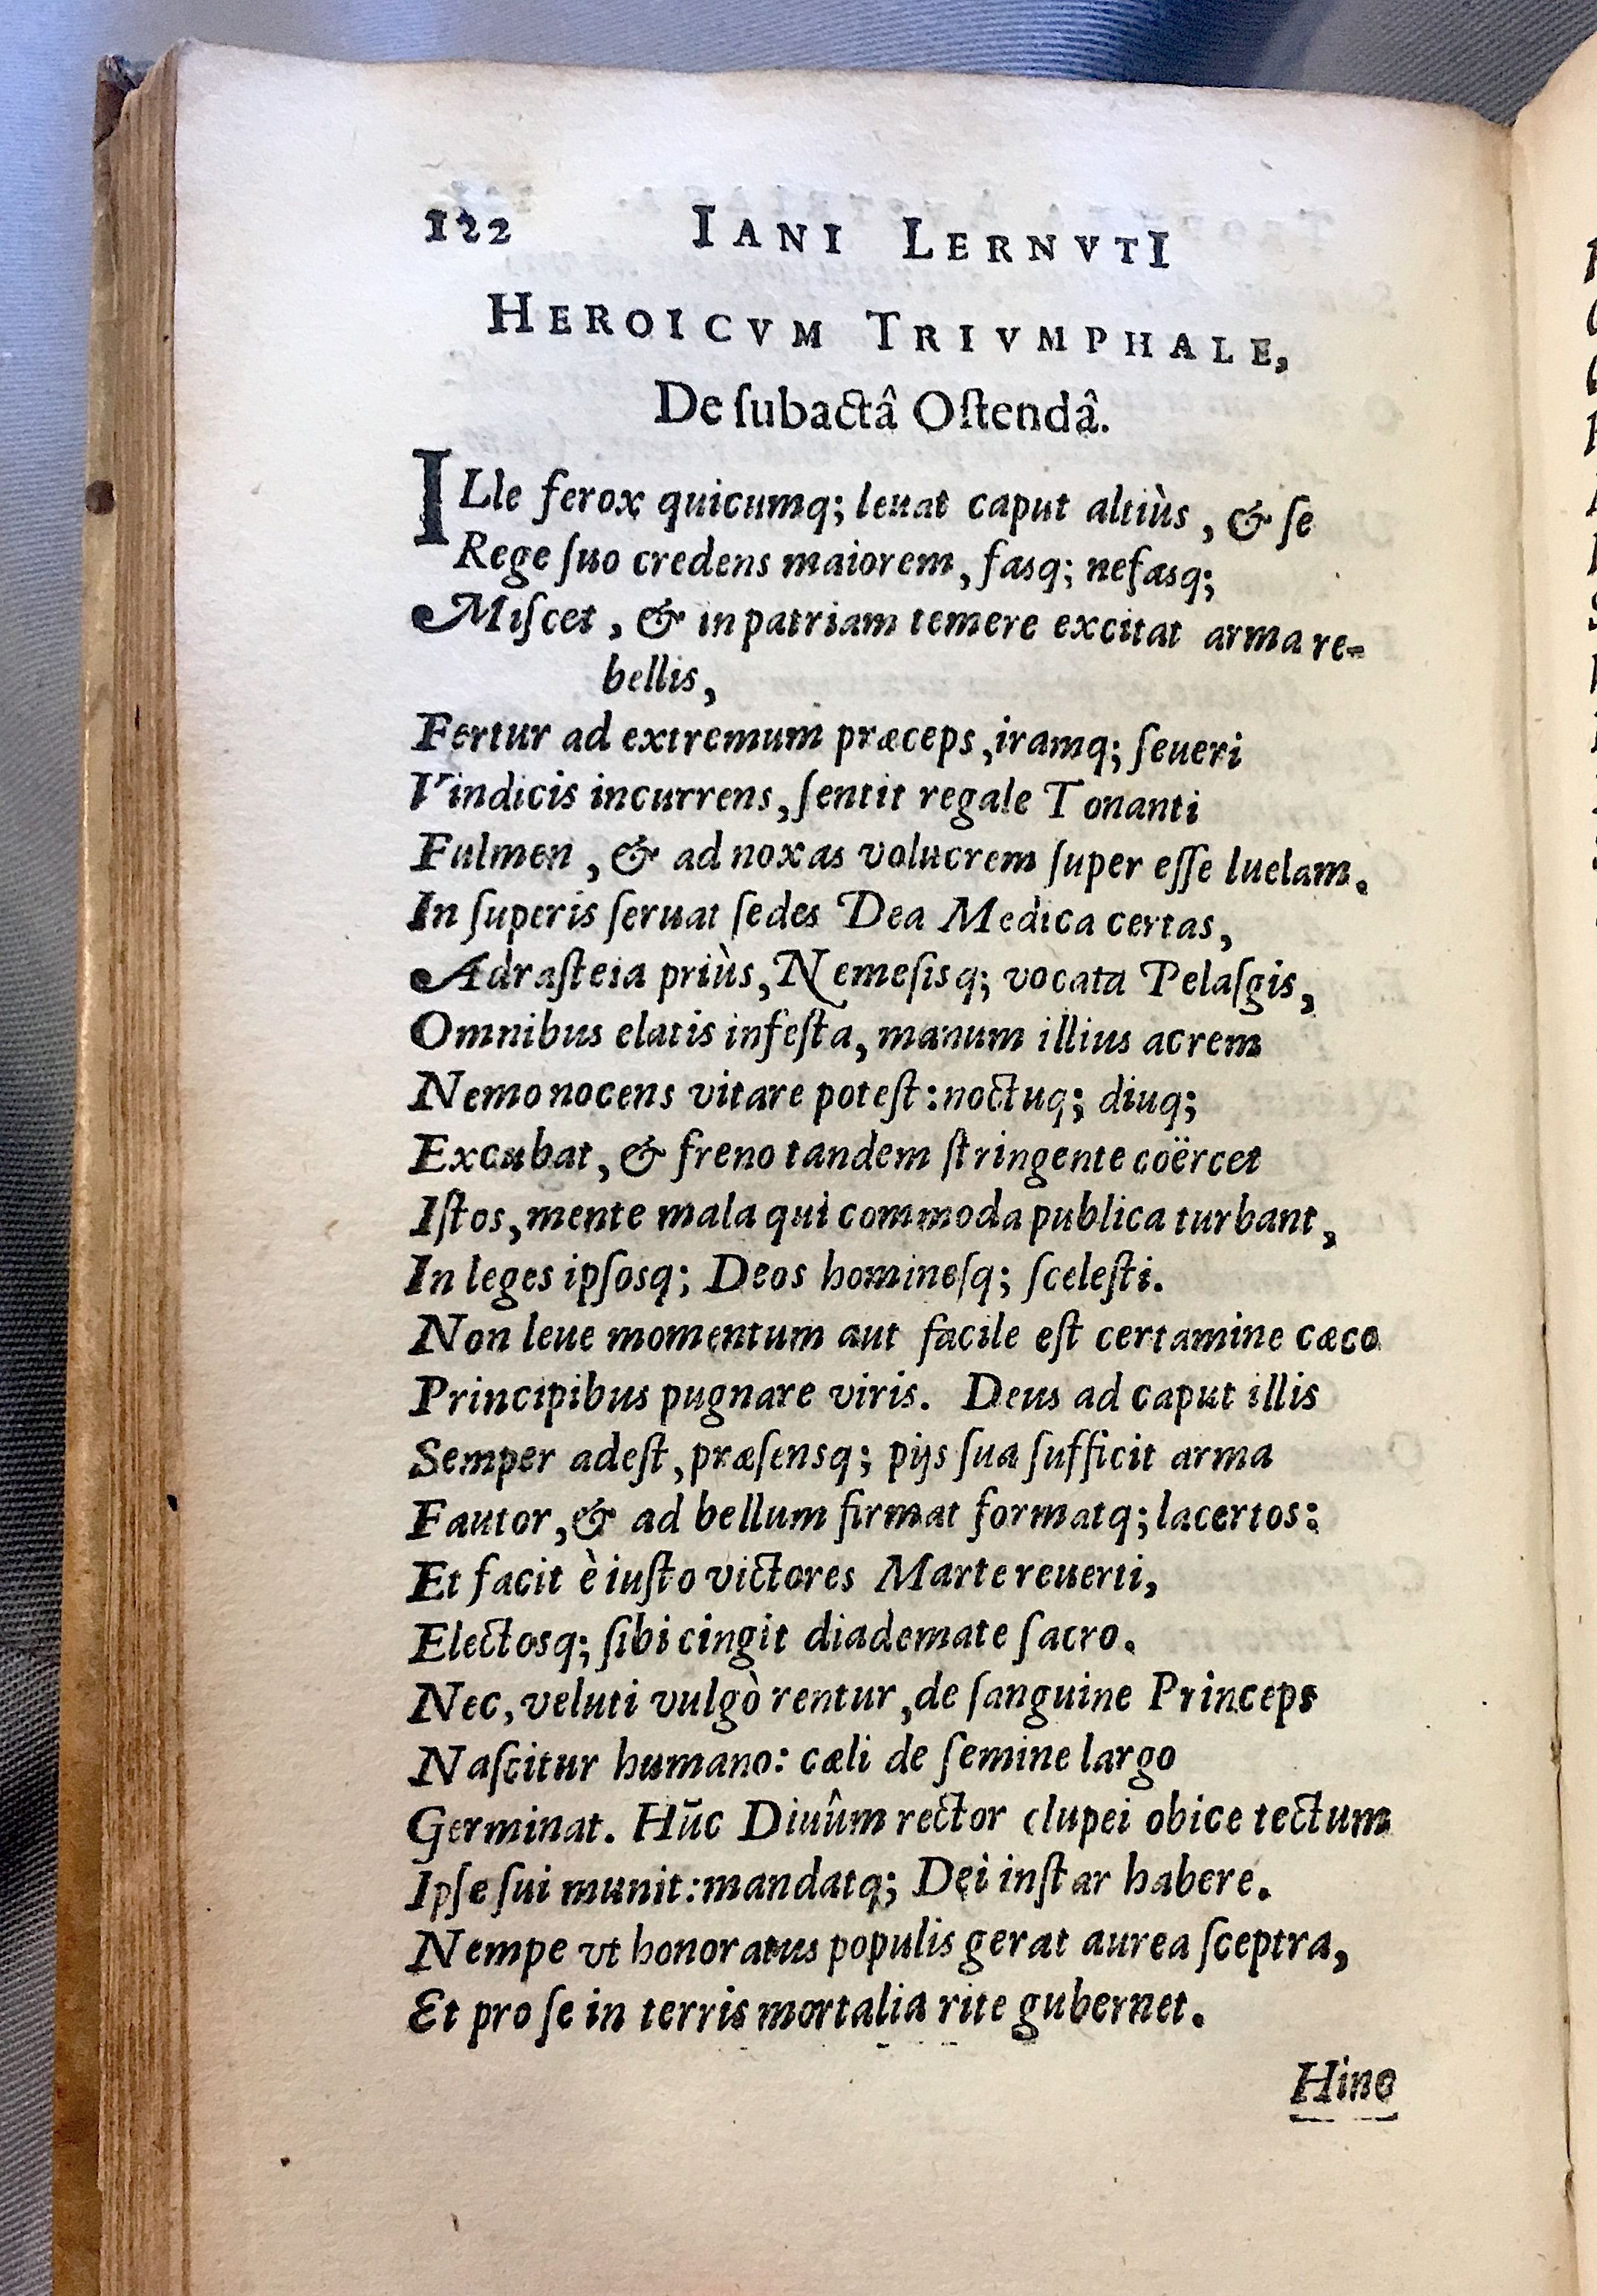 122 IANI LERNVTI
HEROICVM TRIVMPHALE,
De ſubactâ Oſtendâ.
ILle ferox quicumq; leuat caput altiùs, & ſe
Rege ſuo credens maiorem, fasq; nefasq;
Miſcet, & in patriam temere excitat arma re-
bellis,
Fertur ad extremum præceps, iramq; ſeueri
Vindicis incurrens, ſentit regale Tonanti
Fulmen, & ad noxas volucrem ſuper eſſe luelam.
In ſuperis ſeruat ſedes Dea Medica certas,
Adraſteia priùs, Nemeſisq; vocata Pelaſgis,
Omnibus elatis infeſta, manum illius acrem
Nemo nocens vitare poteſt: noctuq; diuq;
Excubat, & freno tandem ſtringente coërcet
Iſtos, mente mala qui commoda publica turbant,
In leges ipſosq; Deos homineſq; ſceleſti.
Non leue momentum aut facile eſt certamine cæco
Principibus pugnare viris. Deus ad caput illis
Semper adeſt, præſensq; pijs ſua ſufficit arma
Fautor, & ad bellum firmat formatq; lacertos:
Et facit è iuſto victores Marte reuerti,
Electosq; ſibi cingit diademate ſacro.
Nec, veluti vulgò rentur, de ſanguine Princeps
Naſcitur humano: cæli de ſemine largo
Germinat. Hūc Diuûm rector clupei obice tectum
Ipſe ſui munit: mandatq; Dei inſtar habere.
Nempe vt honoratus populis gerat aurea ſceptra,
Et pro ſe in terris mortalia rite gubernet.
Hinc